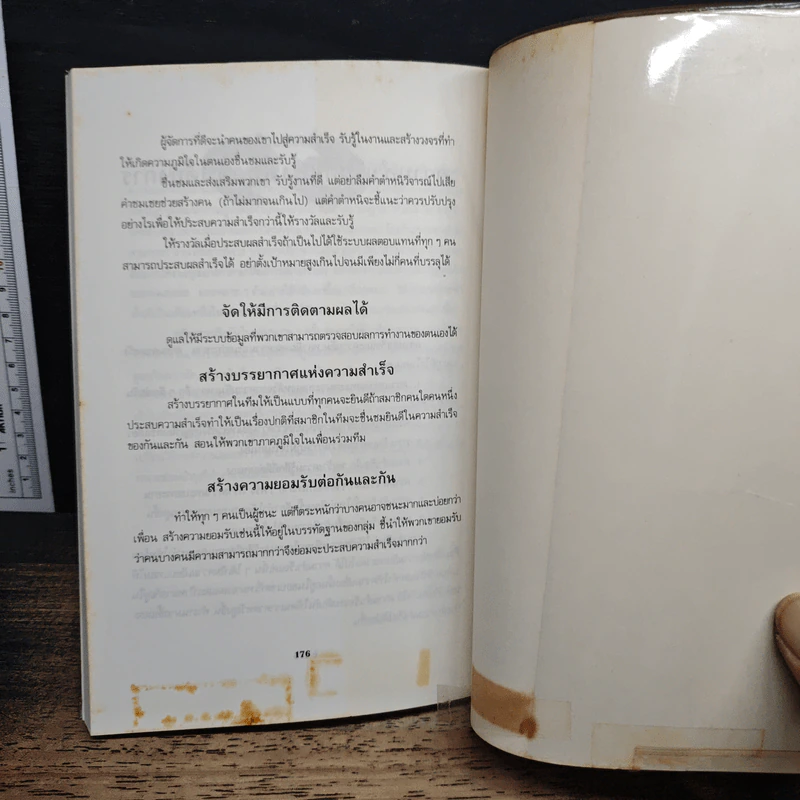 ผู้จัดการที่ดีจะนำคนของเขาไปสู่ความสำเร็จ รับรู้ในงานและสร้างวงจรที่ทำ
ให้เกิดความภูมิใจในตนเองชื่นชมและรับรู้
ชื่นชมและส่งเสริมพวกเขา รับรู้งานที่ดี แต่อย่าลืมคำตำหนิวิจารณ์ไปเสีย
คำชมเชยช่วยสร้างคน (ถ้าไม่มากจนเกินไป) แต่คำตำหนิจะชี้แนะว่าควรปรับปรุง
อย่างไรเพื่อให้ประสบความสำเร็จกว่านี้ให้รางวัลและรับรู้
ให้รางวัลเมื่อประสบผลสำเร็จถ้าเป็นไปได้ใช้ระบบผลตอบแทนที่ทุก ๆ คน
สามารถประสบผลสำเร็จได้ อย่าตั้งเป้าหมายสูงเกินไปจนมีเพียงไม่กี่คนที่บรรลุได้
จัดให้มีการติดตามผลได้
ดูแลให้มีระบบข้อมูลที่พวกเขาสามารถตรวจสอบผลการทำงานของตนเองได้
สร้างบรรยากาศแห่งความสำเร็จ
สร้างบรรยากาศในทีมให้เป็นแบบที่ทุกคนจะยินดีถ้าสมาชิกคนใดคนหนึ่ง
ประสบความสำเร็จทำให้เป็นเรื่องปกติที่สมาชิกในทีมจะชื่นชมยินดีในความสำเร็จ
ของกันและกัน สอนให้พวกเขาภาคภูมิใจในเพื่อนร่วมทีม
สร้างความยอมรับต่อกันและกัน
ทำให้ทุก ๆ คนเป็นผู้ชนะ แต่ก็ตระหนักว่าบางคนอาจชนะมากและบ่อยกว่า
เพื่อน สร้างความยอมรับเช่นนี้ให้อยู่ในบรรทัดฐานของกลุ่ม ชี้นำให้พวกเขายอมรับ
ว่าคนบางคนมีความสามารถมากกว่าจึงย่อมจะประสบความสำเร็จมากกว่า
176
inches